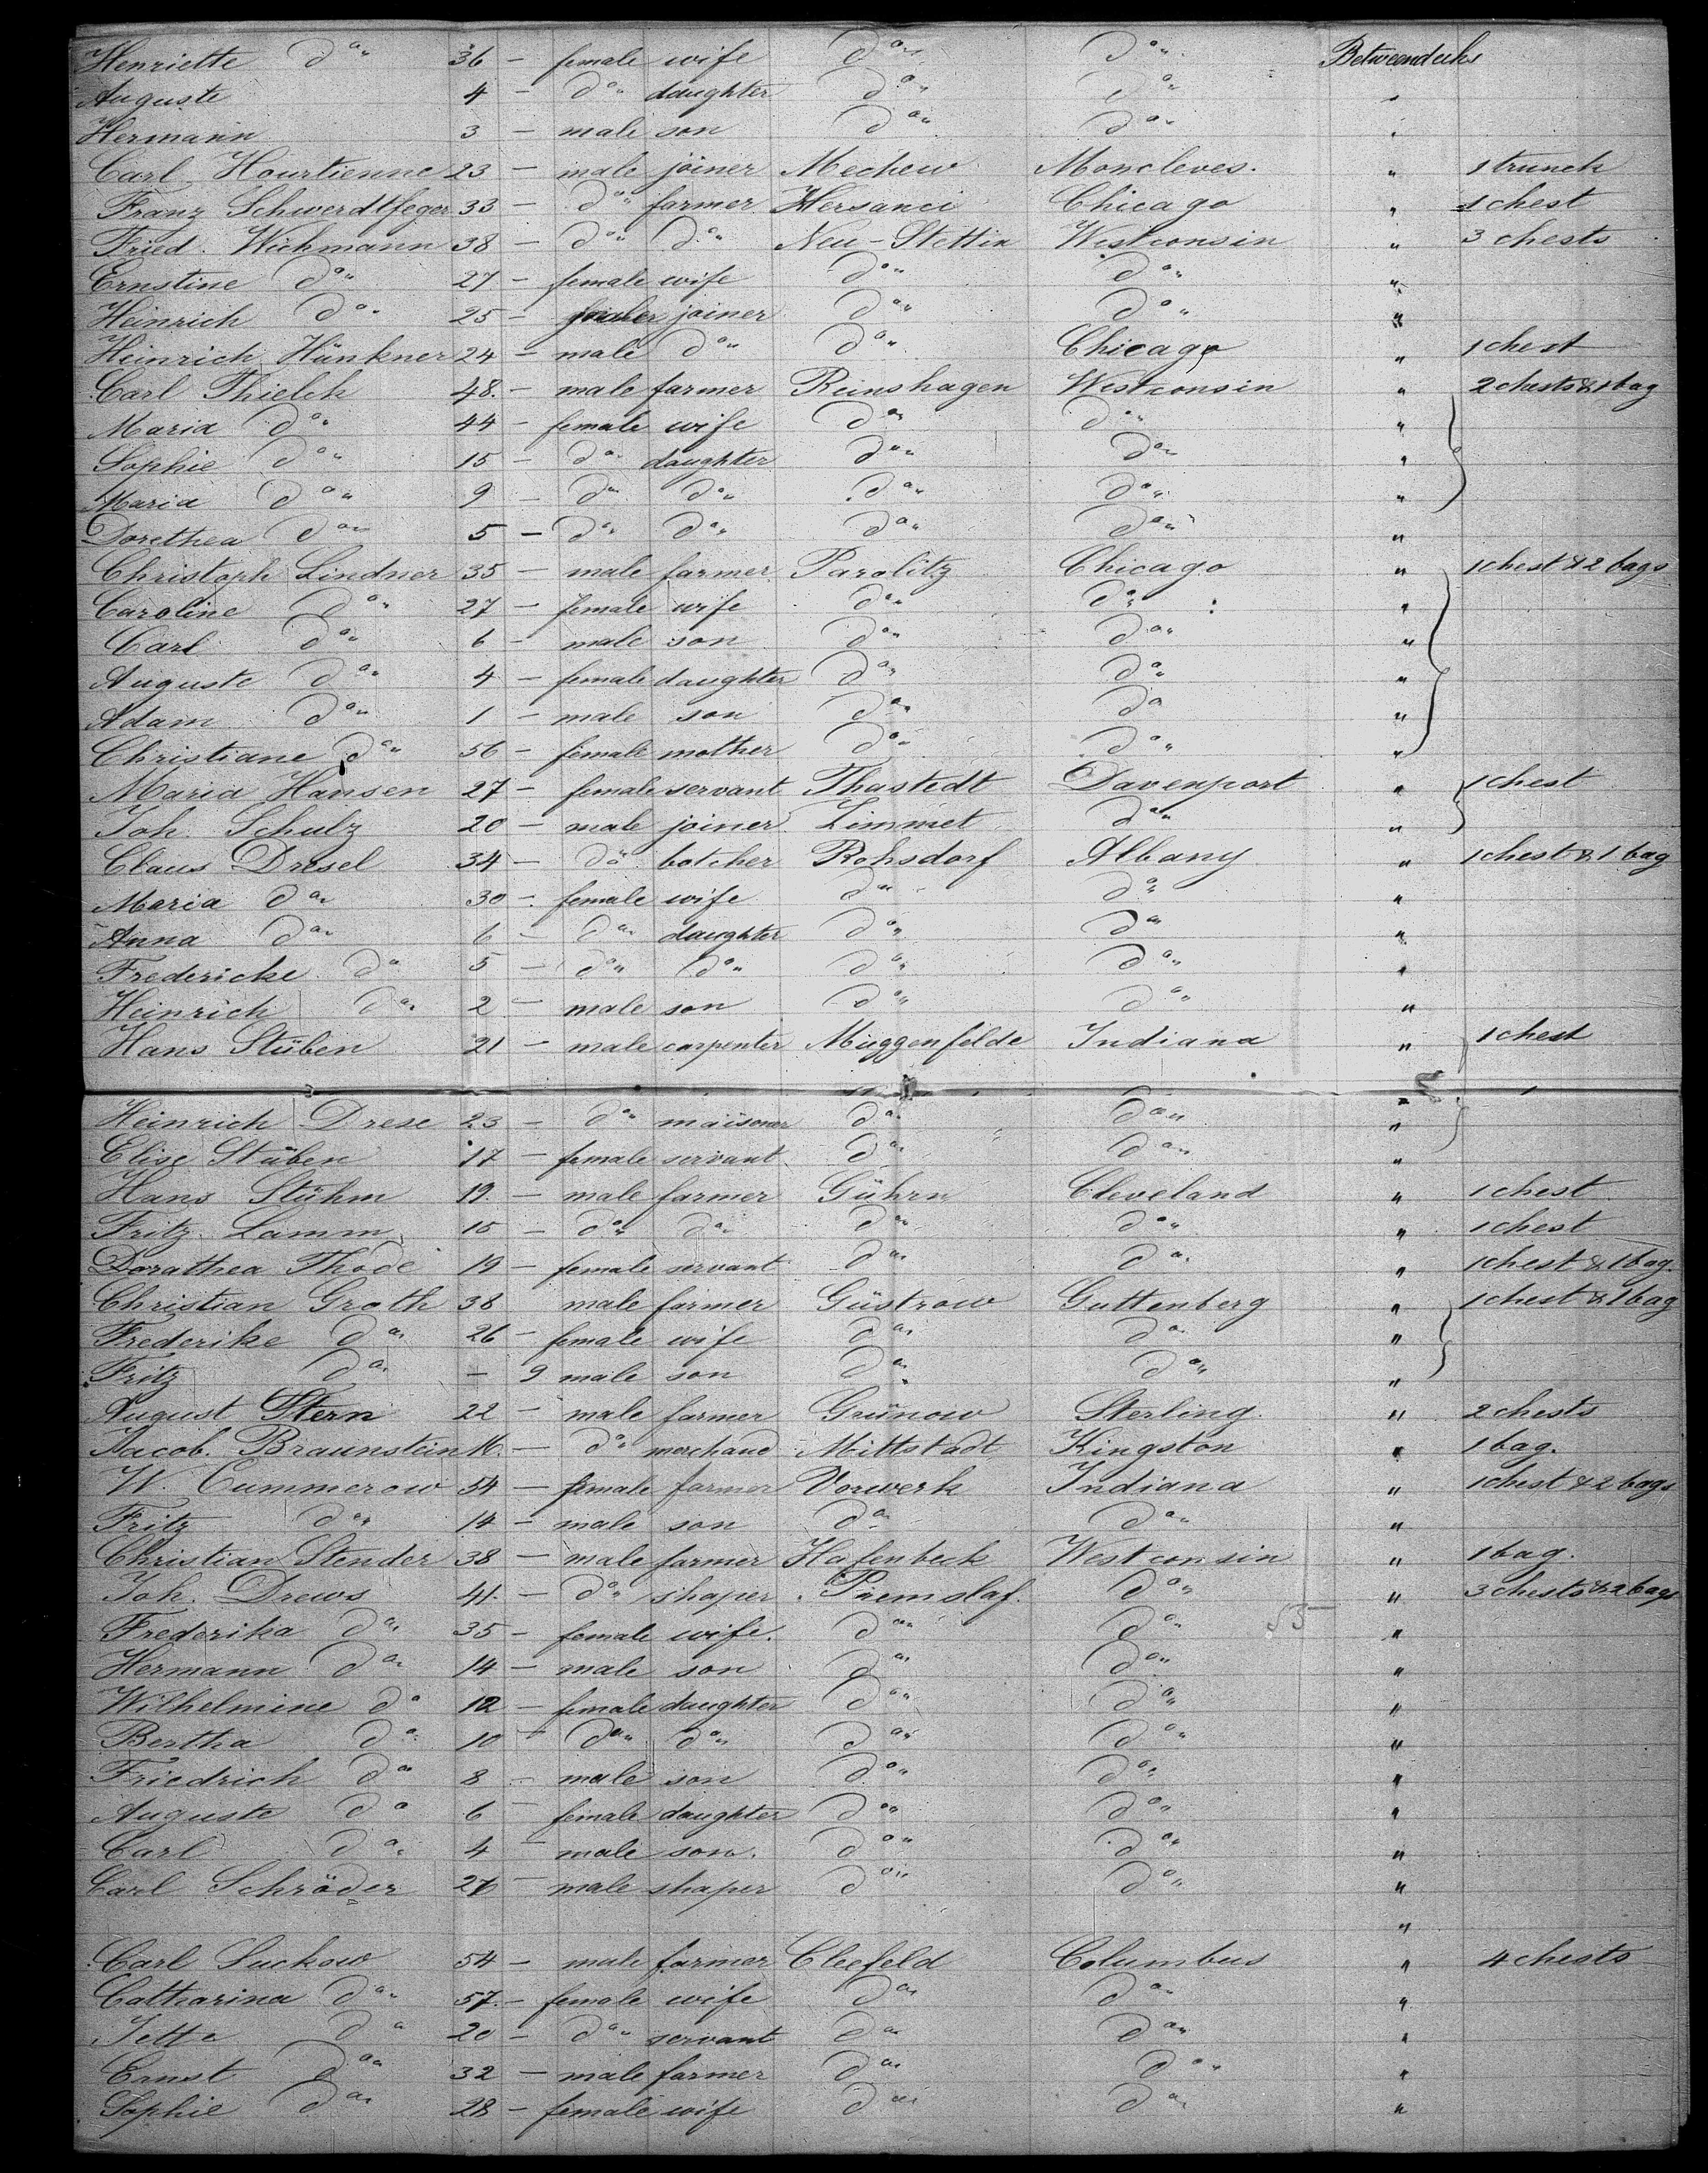 Henriette do 36 – female wife do do Betweendecks
Auguste 4 – do daughter do do "
Hermann 3 – male son do do "
Carl Hourtienne 23 – male joiner Mechow Moncleves. " 1 trunck
Franz Schwerdtfeger 33 – do farmer Hersanci Chicago " 1 chest
Fried. Wichmann 38 – do do Neu-Stettin Westconsin " 3 chests
Ernstine do 27 – female wife do do "
Heinrich do 25 – joiner do do "
Heinrich Hünkner 24 – male do do Chicago " 1 chest
Carl Thielck 48. – male farmer Reinshagen Westconsin " 2 chests & 1 bag
Maria do 44 – female wife do do "
Sophie do 15 – do daughter do do "
Maria do 9 – do do do do "
Dorethea do 5 – do do do do "
Christoph Lindner 35 – male farmer Parolitz Chicago " 1 chest & 2 bags
Caroline do 27 – female wife do do "
Carl do 6 – male son do do "
Auguste do 4 – female daughter do do "
Adam do 1 – male son do do "
Christiane do 56 – female mother do do "
Maria Hansen 27 – female servant Thastedt Davenport " 1 chest
Joh. Schulz 20 – male joiner Zimmet do "
Claus Dresel 34 – do botcher Rohsdorf Albany " 1 chest & 1 bag
Maria do 30 – female wife do do "
Anna do 6 – do daughter do do "
Fredericke do 5 – do do do do "
Heinrich do 2 – male son do do "
Hans Stüben 21 – male carpenter Müggenfelde Indiana " 1 chest
Heinrich Drese 23 – do do do "
Elise Stüben 17 – female servant do do "
Hans Stühm 19. – male farmer Gührn Cleveland " 1 chest
Fritz Lamm 15 – do do do do " 1 chest
Dorathea Thode 19 – female servant do do " 1 chest & 1 bag.
Christian Groth 38 male farmer Güstrow Guttenberg " 1 chest & 1 bag
Frederike do 26 – female wife do do "
Fritz do – 9 male son do do "
August Stern 22 – male farmer Grünow Sterling " 2 chests
Jacob. Braunstein 16. – do merchand Mittstadt Kingston " 1 bag.
W. Cummerow 54 – female farmer Vorwerk Indiana " 1 chest & 2 bags
Fritz do 14 – male son do do "
Christian Stender 38 – male farmer Hafenbeck Westconsin " 1 bag.
Joh. Drews 41. – do shaper Premslaf. do " 3 chests & 2 bags
Frederika do 35 – female wife. do do 53 "
Hermann do 14 – male son do do "
Wilhelmine do 12 – female daughter do do "
Bertha do 10 – do do do do "
Friedrich do 8 – male son do do "
Auguste do 6 – female daughter do do "
Carl do 4 – male son. do do "
Carl Schröder 26 – male shaper do do "
"
Carl Suckow 54 – male farmer Cleefeld Columbus " 4 chests
Catharina do 57. – female wife do do "
Jette do 20 – do servant do do "
Ernst do 32 – male farmer do do "
Sophie do 28 – female wife do do "